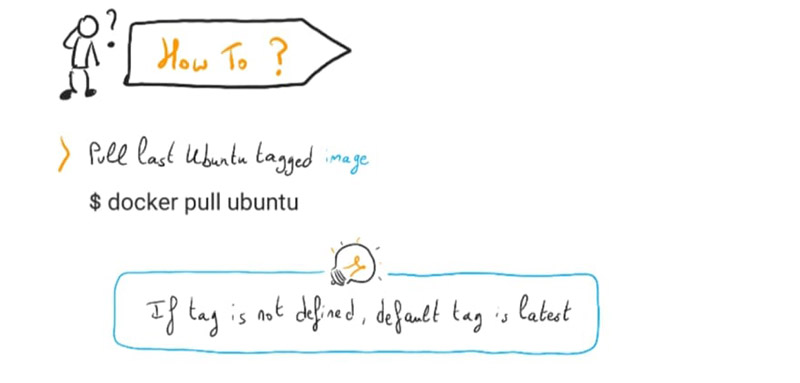 ?
How To ?
> Pull last Ubuntu tagged image
$ docker pull ubuntu
If tag is not defined, default tag is latest